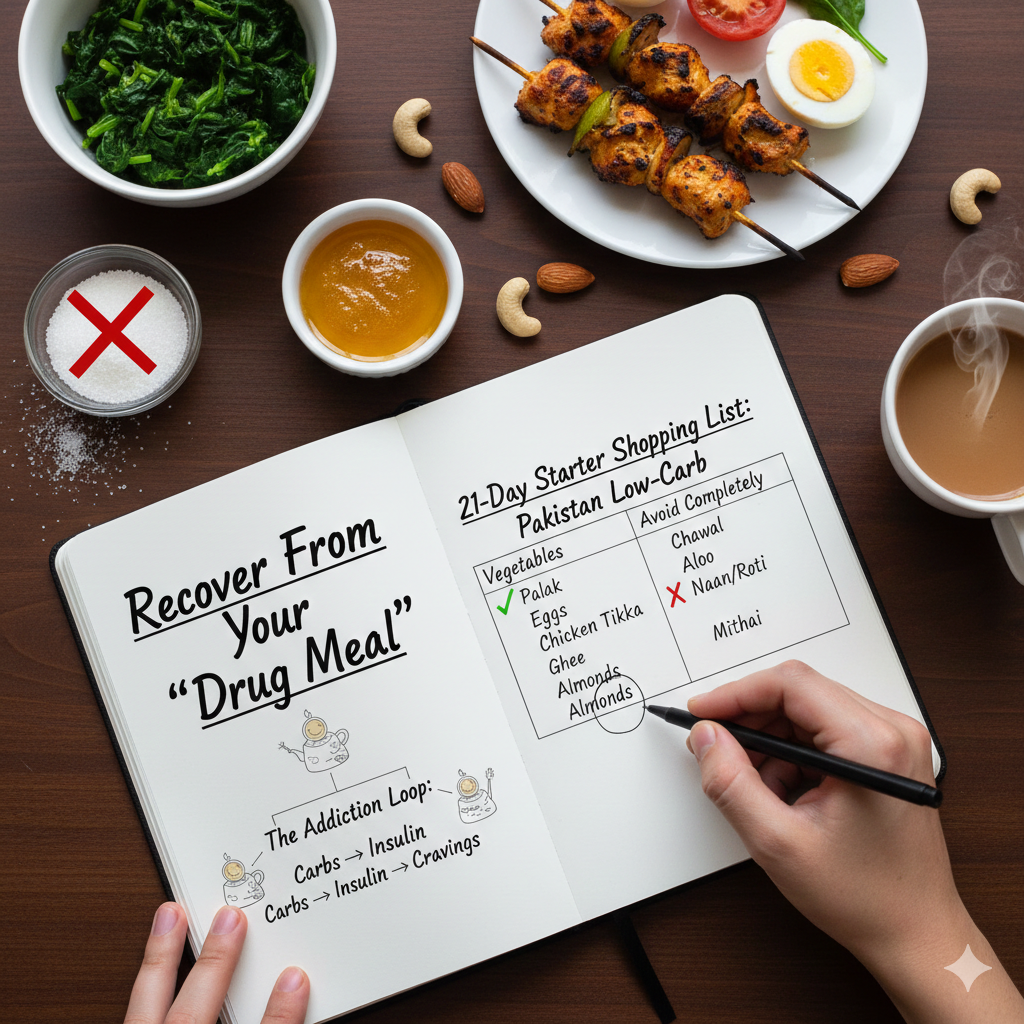 Recover From
Your
“Drug Meal”
The Addiction Loop:
Carbs → Insulin
Carbs → Insulin → Cravings
21-Day Starter Shopping List:
Pakistan Low-Carb
Vegetables
Palak
Eggs
Chicken Tikka
Ghee
Almonds
Almonds
Avoid Completely
Chawal
Aloo
Naan/Roti
Mithai